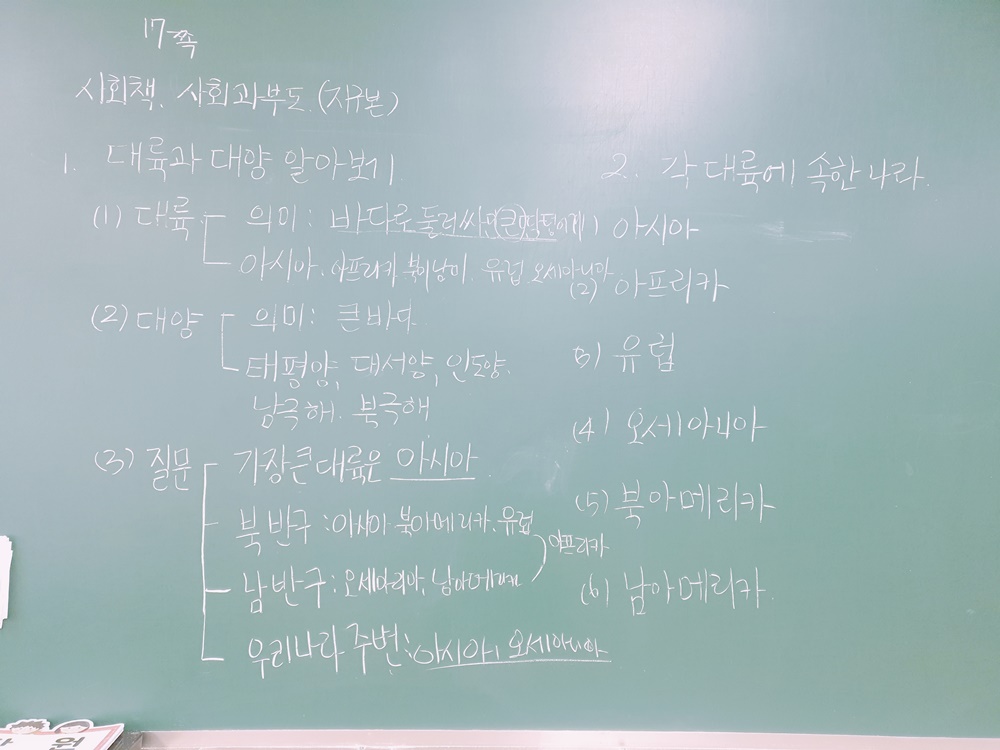 17쪽
시회책. 사회과부도.(지구본)
1. 대륙과 대양 알아보기
(1) 대륙
의미: 바다로 둘러싸인 큰 땅덩어리
아시아. 아프리카 북미남미. 유럽 오세아니아
(2) 대양
의미: 큰바다
태평양, 대서양, 인도양.
남극해. 북극해
(3) 질문
가장큰대륙은 아시아
북반구: 아시아 북아메리카. 유럽
아프리카
남반구: 남아메리카
우리나라 주변: 아시아, 오세아니아
2. 각 대륙에 속한 나라.
아시아
(2) 아프리카
(3) 유럽
(4) 오세아니아
(5) 북아메리카
(6) 남아메리카.
원